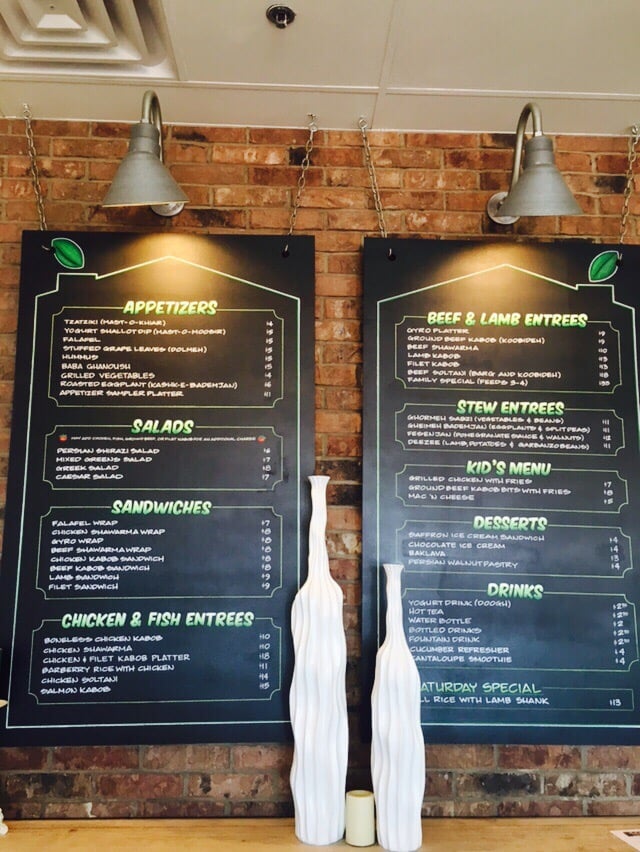 APPETIZERS
TZATZIKI (MAST-O-KHIAR) $4
YOGURT SHALLOT DIP (MAST-O-MOOSIR) $5
FALAFEL $5
STUFFED GRAPE LEAVES (DOLMEH) $5
HUMMUS $5
BABA GHANOUSH $5
GRILLED VEGETABLES $4
ROASTED EGGPLANT (KASHK-E-BADEMJAN) $6
APPETIZER SAMPLER PLATTER $11
SALADS
MAY ADD CHICKEN, FISH, GROUND BEEF, OR FILET KABOB FOR AN ADDITIONAL CHARGE
PERSIAN SHIRAZI SALAD $6
MIXED GREENS SALAD $7
GREEK SALAD $8
CAESAR SALAD $7
SANDWICHES
FALAFEL WRAP $7
CHICKEN SHAWARMA WRAP $8
GYRO WRAP $8
BEEF SHAWARMA WRAP $8
CHICKEN KABOB SANDWICH $8
BEEF KABOB SANDWICH $8
LAMB SANDWICH $9
FILET SANDWICH $9
CHICKEN & FISH ENTREES
BONELESS CHICKEN KABOB $10
CHICKEN SHAWARMA $10
CHICKEN & FILET KABOB PLATTER $18
BARBERRY RICE WITH CHICKEN $11
CHICKEN SOLTANI $14
SALMON KABOB $15
BEEF & LAMB ENTREES
GYRO PLATTER $9
GROUND BEEF KABOB (KOOBIDEH) $9
BEEF SHAWARMA $10
LAMB KABOB $13
FILET KABOB $13
BEEF SOLTANI (BARG AND KOOBIDEH) $18
FAMILY SPECIAL (FEEDS 3-4)
STEW ENTREES
GHORMEH SABZI (VEGETABLES & BEANS) $11
GHEIMEH BADEMJAN (EGGPLANTS & SPLIT PEAS) $11
FESENJAN (POMEGRANATE SAUCE & WALNUTS) $12
DEEZEE (LAMB, POTATOES & GARBANZO BEANS) $11
KID'S MENU
GRILLED CHICKEN WITH FRIES $7
GROUND BEEF KABOB BITS WITH FRIES $8
MAC 'N CHEESE $5
DESSERTS
SAFFRON ICE CREAM SANDWICH $4
CHOCOLATE ICE CREAM $4
BAKLAVA $3
PERSIAN WALNUT PASTRY $4
DRINKS
YOGURT DRINK (DOOGH) $2⁵⁰
HOT TEA $2⁵⁰
WATER BOTTLE $2
BOTTLED DRINKS $2⁵⁰
FOUNTAIN DRINK $2
CUCUMBER REFRESHER $4
CANTALOUPE SMOOTHIE $4
ATURDAY SPECIAL
LL RICE WITH LAMB SHANK $13